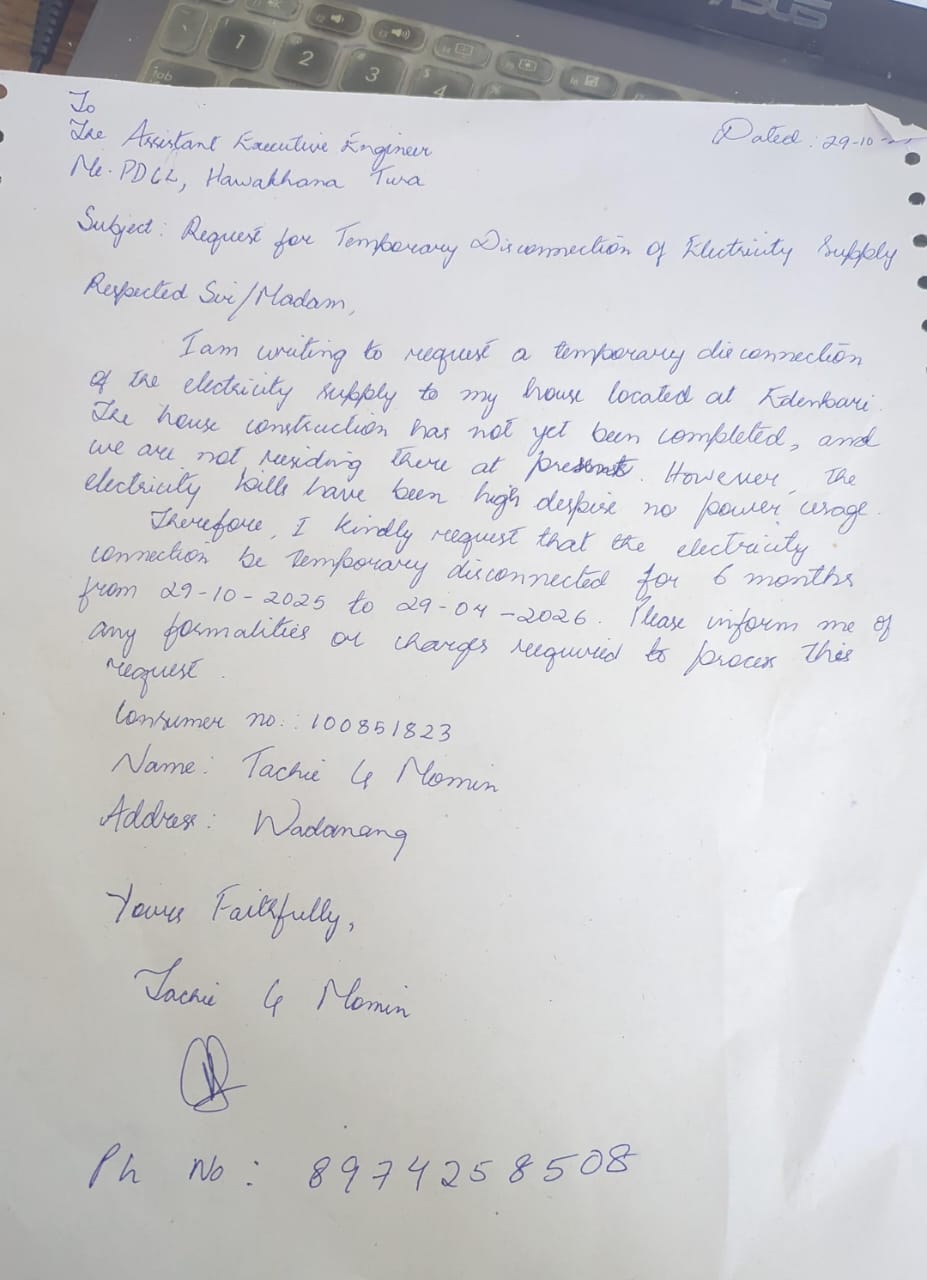 ASUS
1
2
3
4
tab
To
The Assistant Executive Engineer
Dated: 29-10
Me. PDCL, Hawakhana Tura
Subject: Request for Temporary Disconnection of Electricity Supply
Respected Sir/Madam,
I am writing to request a temporary disconnection
of the electricity supply to my house located at Edenbari.
The house construction has not yet been completed, and
we are not residing there at present. However, the
electricity bills have been high despise no power usage.
Therefore, I kindly request that the electricity
connection be temporary disconnected for 6 months
from 29-10-2025 to 29-04-2026. Please inform me of
any formalities or charges required to process this
request.
Consumer no.: 100851823
Name: Tachie G Momin
Address: Wadanang
Yours Faithfully,
Tachie G Momin
Ph No: 8974258508